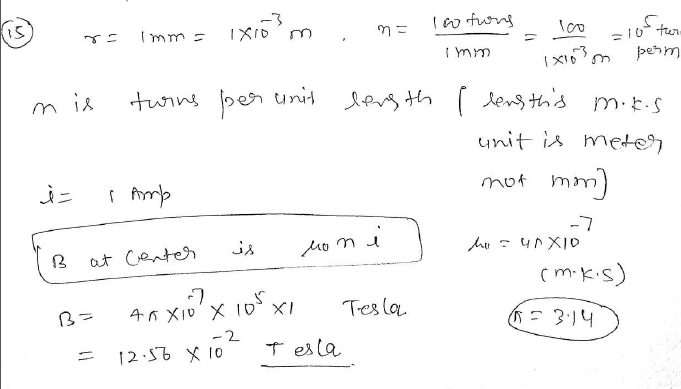 (15) r = 1mm = 1×10⁻³ m , n = 100 turns / 1 mm = 100 / 1×10⁻³ m = 10⁵ turn per m
n is turns per unit length [ length's m.k.s unit is meter not mm]
i = 1 Amp
μ₀ = 4π×10⁻⁷ (m.k.s)
B at center is μ₀ n i
B = 4π×10⁻⁷ × 10⁵ ×1 Tesla
π = 3.14
= 12.56 × 10⁻² Tesla